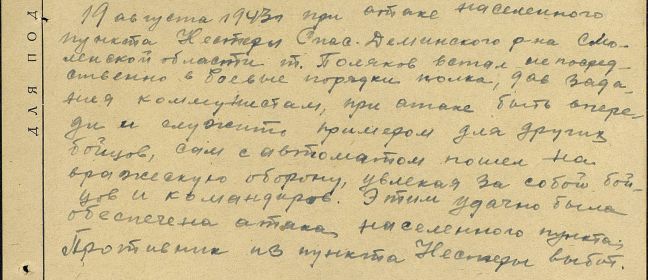 19 августа 1943г при атаке населенного
пункта Нестеры Спас-Деминского р-на Смо-
ленской области т. Поляков встал непосред-
ственно в боевые порядки полка, дав зада-
ния коммунистам, при атаке быть впере-
ди и служить примером для других
бойцов, сам с автоматом пошел на
вражескую оборону, увлекая за собой бой-
цов и командиров. Этим удачно была
обеспечена атака населенного пункта.
Противник из пункта Нестеры выбит.
ДЛЯ ПОД